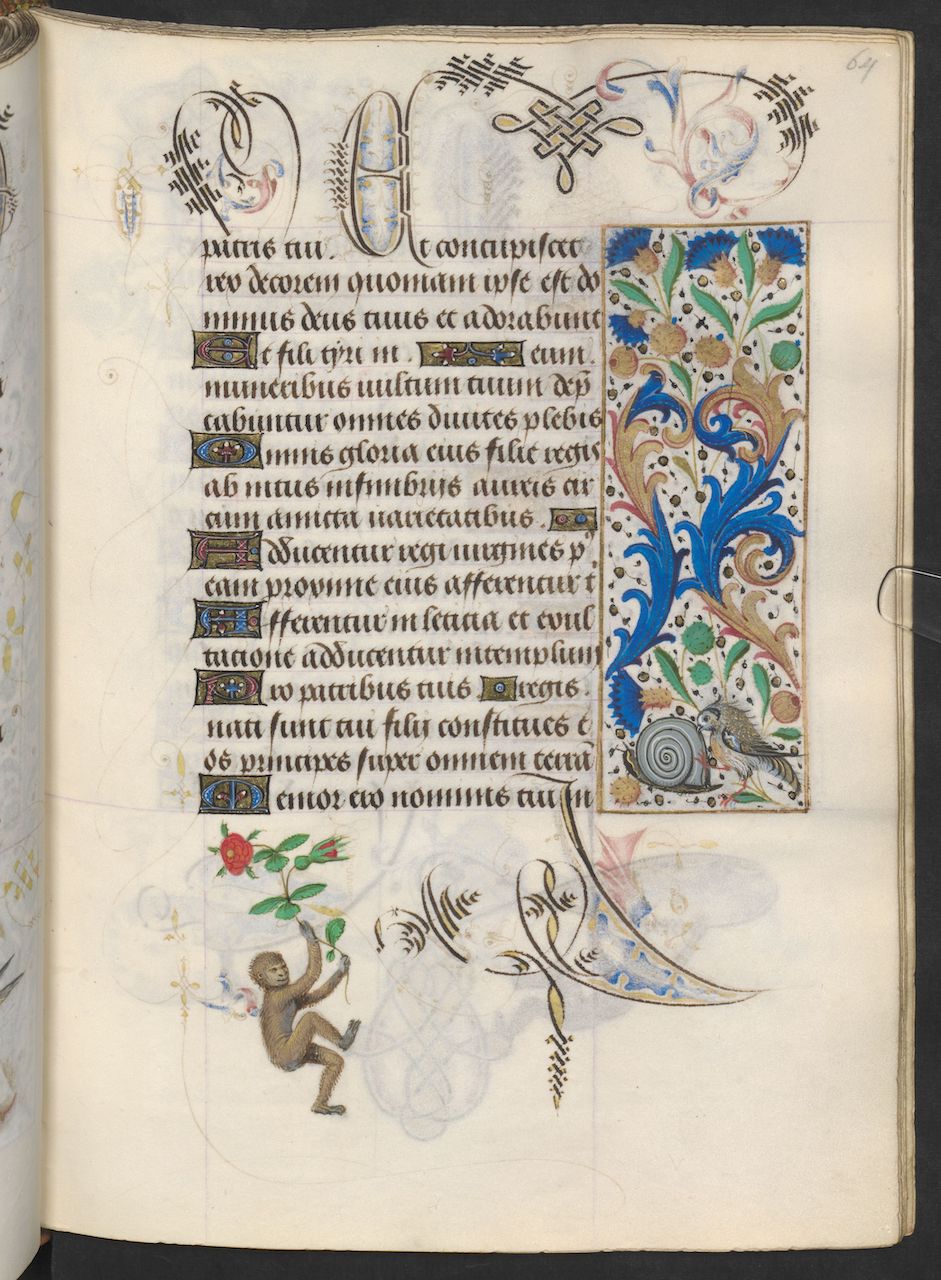 64
patris tui. Et concupiscet
rex decorem quoniam ipse est do
minus deus tuus et adorabunt
Et filie tyri in . eum .
muneribus uultum tuum dep̄
cabuntur omnes diuites plebis
Omnis gloria eius filie regis
ab intus in fimbrijs aureis cir
cum amicta uarietatibus .
Adducentur regi uirgines p̄
eam proxime eius afferentur t̄
Afferentur in leticia et exul
tacione adducentur in templum
Pro patribus tuis regis .
nati sunt tui filij constitues e
os principes super omnem terrā
Memor ero nominis tui In